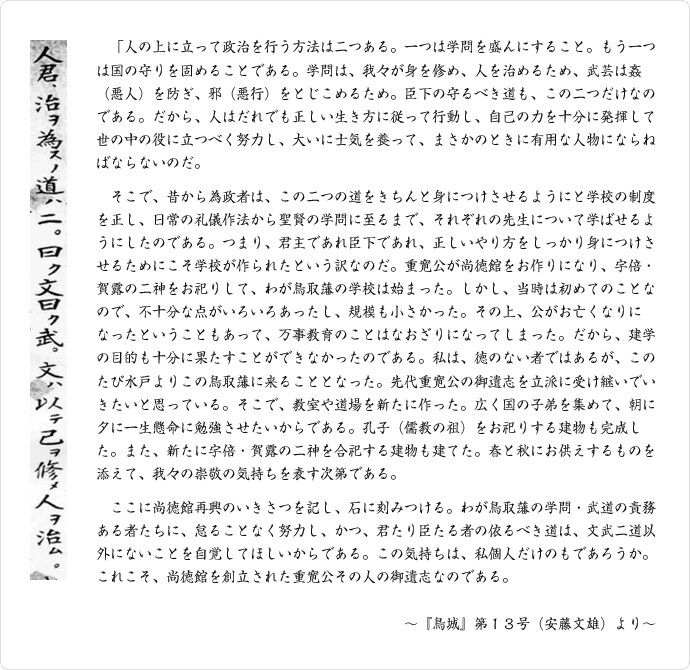 人君、治ヲ為スノ道ハ二。曰ク文曰ク武。文ハ以テ己ヲ修メ人ヲ治ム。
「人の上に立って政治を行う方法は二つある。一つは学問を盛んにすること。もう一つ
は国の守りを固めることである。学問は、我々が身を修め、人を治めるため、武芸は姦
（悪人）を防ぎ、邪（悪行）をとじこめるため。臣下の守るべき道も、この二つだけなの
である。だから、人はだれでも正しい生き方に従って行動し、自己の力を十分に発揮して
世の中の役に立つべく努力し、大いに士気を養って、まさかのときに有用な人物にならね
ばならないのだ。
そこで、昔から為政者は、この二つの道をきちんと身につけさせるようにと学校の制度
を正し、日常の礼儀作法から聖賢の学問に至るまで、それぞれの先生について学ばせるよ
うにしたのである。つまり、君主であれ臣下であれ、正しいやり方をしっかり身につけさ
せるためにこそ学校が作られたという訳なのだ。重寛公が尚徳館をお作りになり、宇倍・
賀露の二神をお祀りして、わが鳥取藩の学校は始まった。しかし、当時は初めてのことな
ので、不十分な点がいろいろあったし、規模も小さかった。その上、公がお亡くなりに
なったということもあって、万事教育のことはなおざりになってしまった。だから、建学
の目的も十分に果たすことができなかったのである。私は、徳のない者ではあるが、この
たび水戸よりこの鳥取藩に来ることとなった。先代重寛公の御遺志を立派に受け継いでい
きたいと思っている。そこで、教室や道場を新たに作った。広く国の子弟を集めて、朝に
夕に一生懸命に勉強させたいからである。孔子（儒教の祖）をお祀りする建物も完成し
た。また、新たに宇倍・賀露の二神を合祀する建物も建てた。春と秋にお供えするものを
添えて、我々の崇敬の気持ちを表す次第である。
ここに尚徳館再興のいきさつを記し、石に刻みつける。わが鳥取藩の学問・武道の責務
ある者たちに、怠ることなく努力し、かつ、君たり臣たる者の依るべき道は、文武二道以
外にないことを自覚してほしいからである。この気持ちは、私個人だけのもであろうか。
これこそ、尚徳館を創立された重寛公その人の御遺志なのである。
～『鳥城』第１３号（安藤文雄）より～